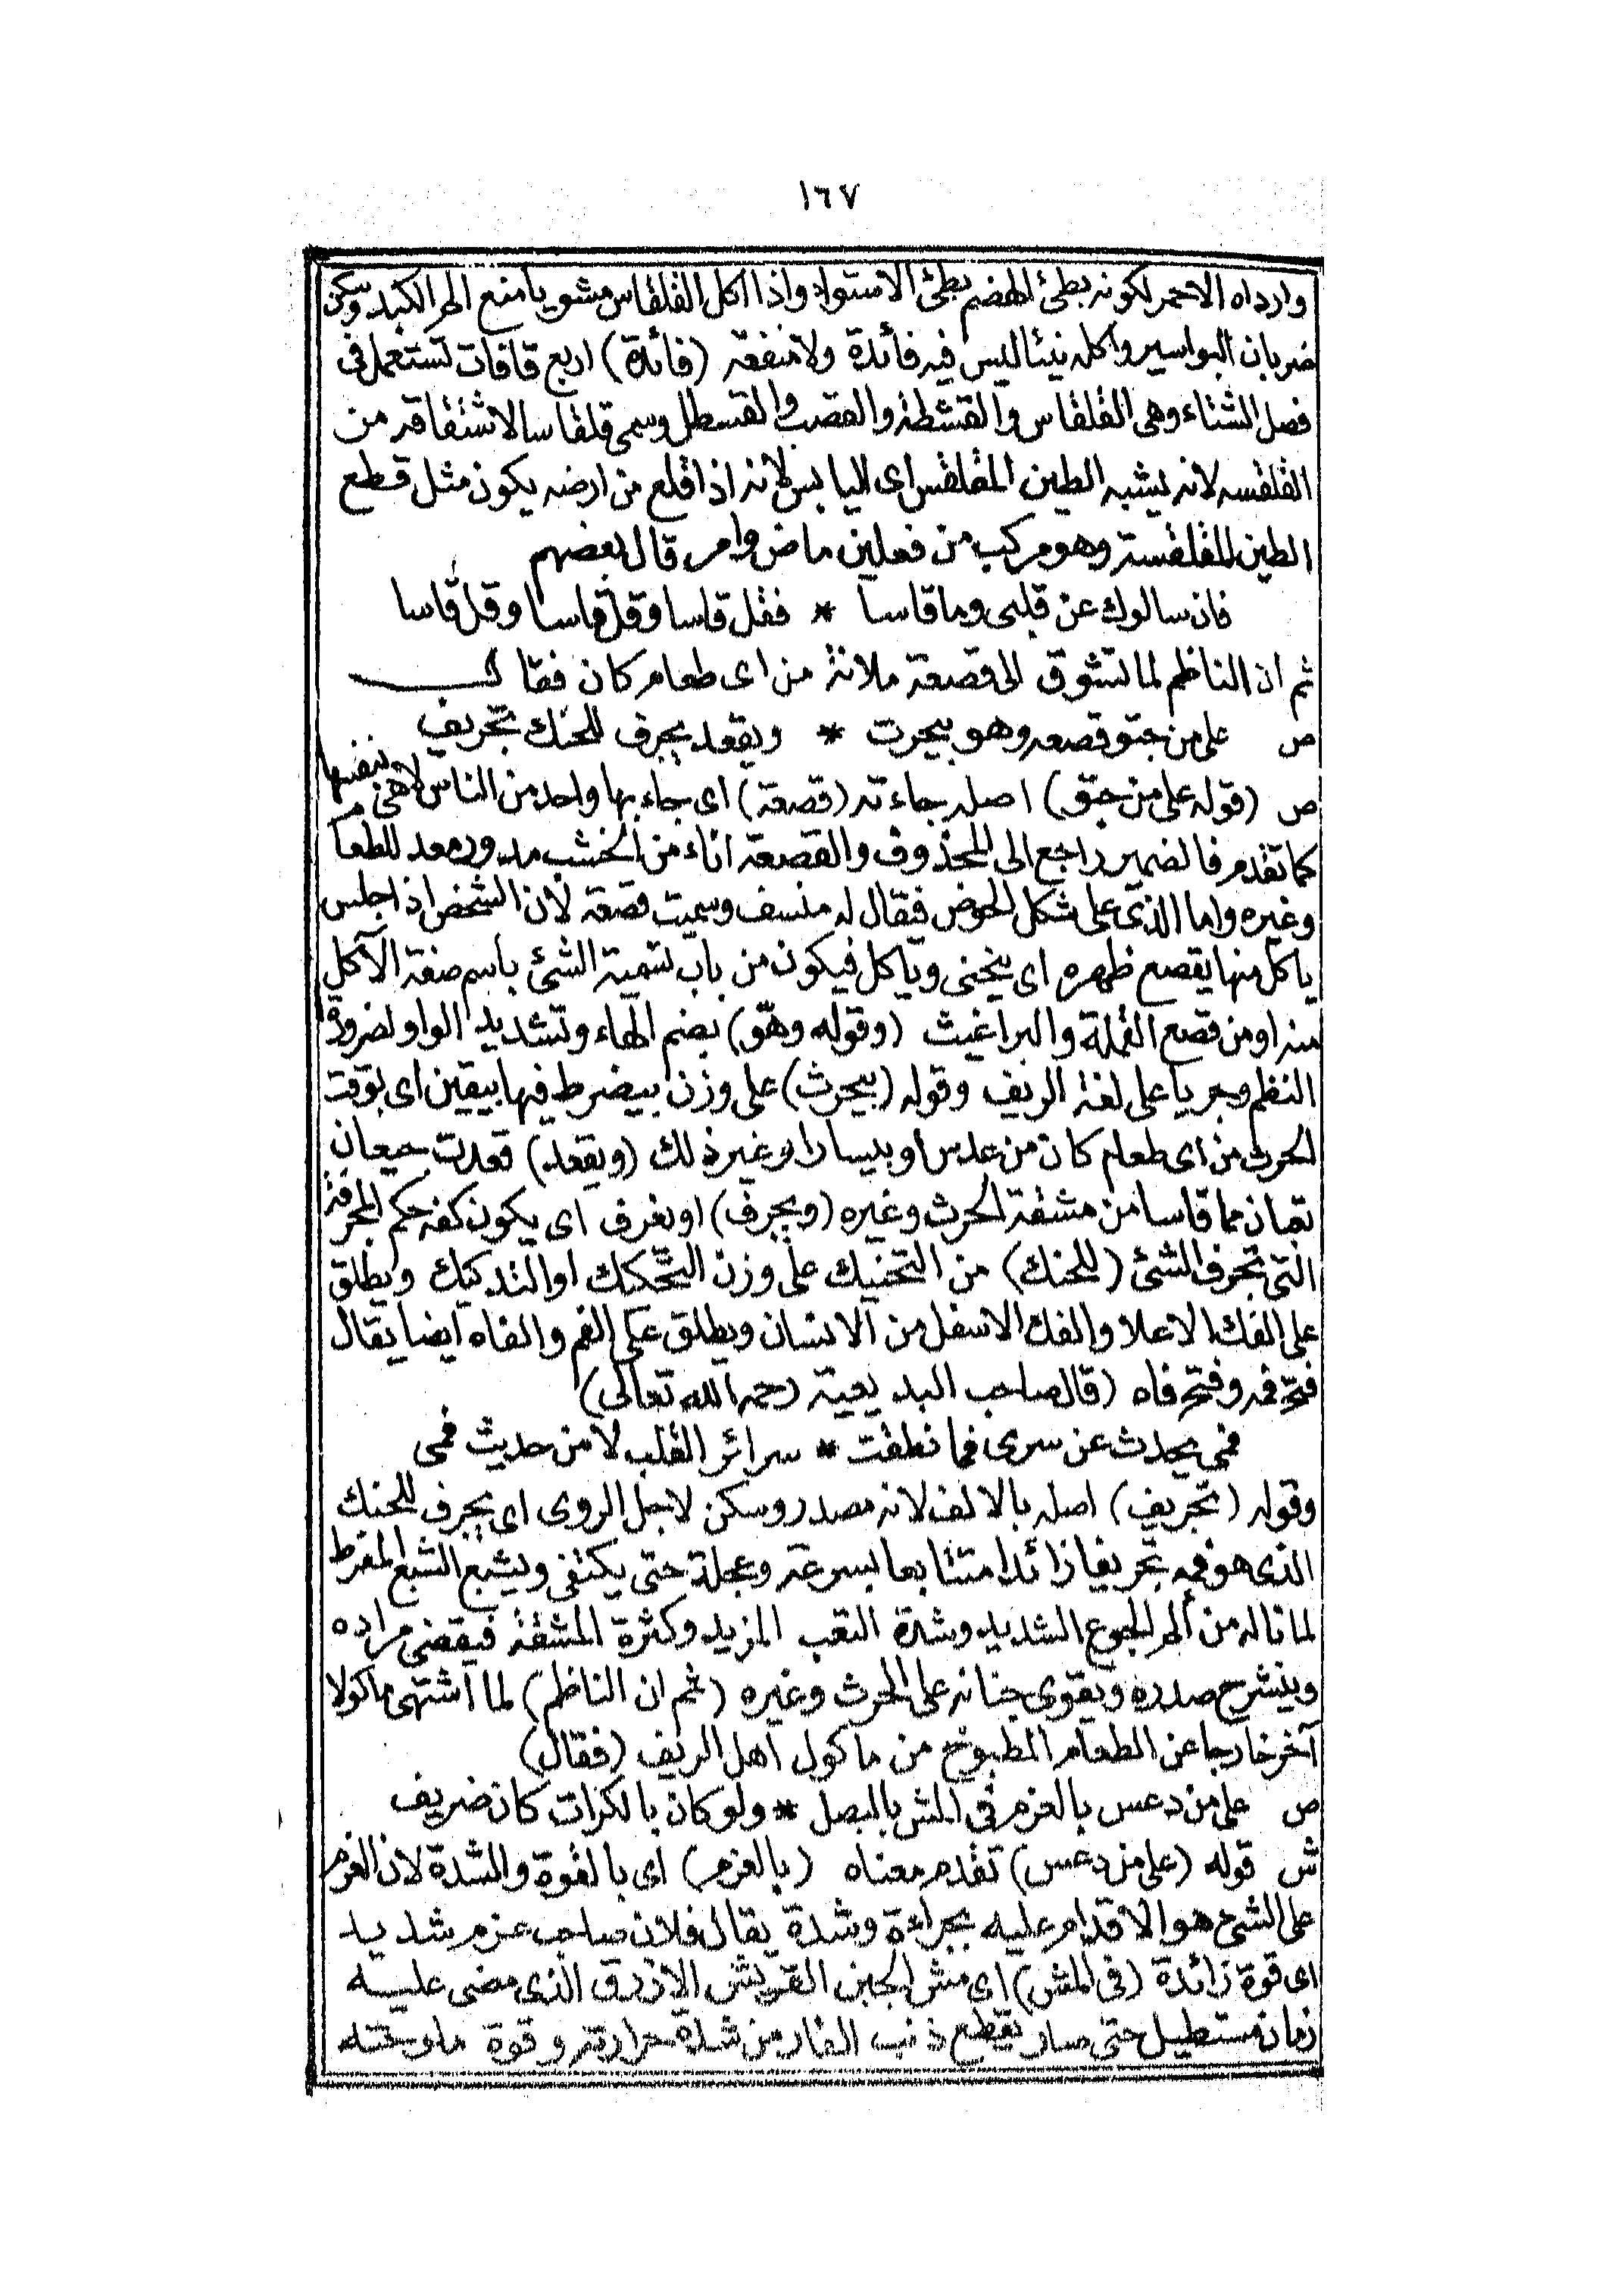 ١٦٧
وارداه الاحمر لكونه بطئ الهضم بطئ الاستواء واذا اكل القلقاس مشويا منع الم الكبد وسكن
ضربان البواسير واكله نيئا ليس فيه فائدة ولا منفعة (فائدة) اربع قافات تستعمل فى
فصل الشتاء وهى القلقاس والقشطة والقصب والقسطل وسمى قلقاسا لاشتقاقه من
القلقسه لانه يشبه الطين المقلقس اى اليابس لانه اذا قلع من ارضه يكون مثل قطع
الطين المقلقسة وهو مركب من فعلين ماض وامر قال بعضهم
فان سالوك عن قلبى وما قاسا * فقل قاسا وقل قاسا وقل قاسا
ثم ان الناظم لما تشوق الى قصعة ملانة من اى طعام كان فقال
ص على من جتو قصعه وهو بيحرت * ويقعد يجرف للحنك تجريف
ص (قوله على من جتو) اصله جاءته (قصعة) اى جاء بها واحد من الناس لا هى بنفسها
كما تقدم فالضمير راجع الى المحذوف والقصعة اناء من الخشب مدور معد للطعام
وغيره واما الذى على شكل الحوض فيقال له منسف وسميت قصعة لان الشخص اذا جلس
ياكل منها يقصع ظهره اى ينحنى وياكل فيكون من باب تسمية الشئ باسم صفة الآكل
منه او من قصع القملة والبراغيث (وقوله وهو) بضم الهاء وتشديد الواو لضرورة
النظم وجريا على لغة الريف وقوله (بيحرث) على وزن بيضرط فيها بيقين اى بوقت
الحرث من اى طعام كان من عدس او بيسار او غير ذلك (ويقعد) قعدت جيعان
تعبان مما قاسا من مشقة الحرث وغيره (ويجرف) او يغرف اى يكون كفه حكم المجرفة
التى تجرف الشئ (للحنك) من التحنيك على وزن التحكيك او التدكيك ويطلق
على الفك الاعلا والفك الاسفل من الانسان ويطلق على الفم والفاه ايضا يقال
فتح فمه وفتح فاه (قال صاحب البديعية رحمه الله تعالى)
فمى يحدث عن سرى فما نطقت * سرائر القلب لا من حديث فمى
وقوله (تجريف) اصله بالالف لانه مصدر وسكن لاجل الروى اى يجرف للحنك
الذى هو فمه تجريفا زائدا متتابعا بسرعة وعجلة حتى يكتفى ويشبع الشبع المفرط
لما ناله من الم الجوع الشديد وشدة التعب المزيد وكثرة المشقة فيقضى مراده
وينشرح صدره ويقوى جنانه على الحرث وغيره (ثم ان الناظم) لما اشتهى ماكولا
آخر خارجا عن الطعام المطبوخ من ماكول اهل الريف (فقال)
ص على من دعس بالعزم فى المش بالبصل * ولو كان بالكرات كان ضريف
ش قوله (على من دعس) تقدم معناه (بالعزم) اى بالقوة والشدة لان العزم
على الشئ هو الاقدام عليه بجراءة وشدة يقال فلان صاحب عزم شديد
اى قوة زائدة (فى المش) اى مش الجبن القريش الازرق الذى مضى عليه
زمان مستطيل حتى صار يقطع ذنب الفار من شدة حرارته وقوة ملوحته